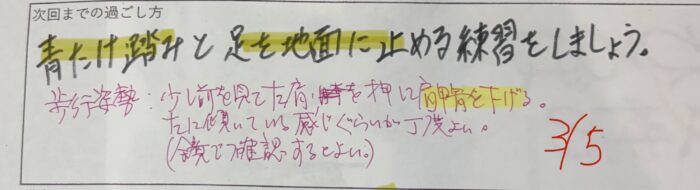 次回までの過ごし方
青たけ踏みと足を地面に止める練習をしましょう。
歩行姿勢：少し前を見て左肩を押し肩甲骨を下げる。
左に傾いている感じぐらいが丁度よい。
(鏡で確認するとよい。)
3/5